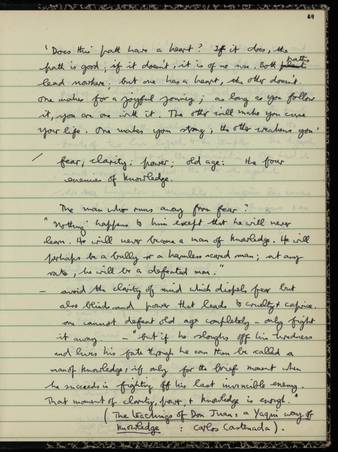 49
'Does this path have a heart? If it does, the
path is good; if it doesn't, it is of no use. Both paths
lead nowhere; but one has a heart, the other doesn't.
One makes for a joyful journey; as long as you follow
it, you are one with it. The other will make you curse
your life. One makes you strong; the other weakens you.'
/ fear; clarity; power; old age: the four
enemies of knowledge.
The man who runs away from fear?
"Nothing happens to him except that he will never
learn. He will never become a man of knowledge. He will
perhaps be a bully or a harmless scared man; at any
rate, he will be a defeated man."
- avoid the clarity of mind which dispels fear but
also blinds and power that leads to cruelty & caprice.
one cannot defeat old age completely - only fight
it away. - "but if he sloughs off his tiredness
and lives his fate through he can then be called a
man of knowledge, if only for the brief moment when
he succeeds in fighting off his last invincible enemy.
That moment of clarity, power, & knowledge is enough."
(The teachings of Don Juan: a Yaqui way of
knowledge : Carlos Castenada).